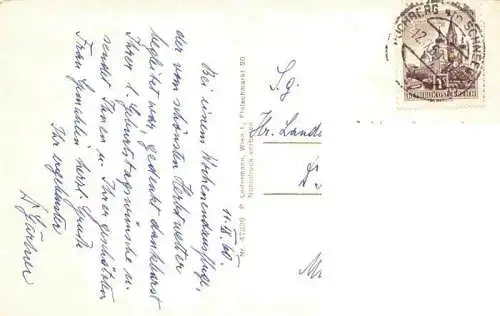 11. IX. 60.
Bei einem Wochenendausfluge,
der vom schönsten Herbstwetter
begleitet war, gedenkt dankbarst
Ihrer l. Geburtstagswünsche u.
sendet Ihnen u. Ihrer geschätzten
Frau Gemahlin herzl. Grüße
Ihr ergebenster
Gärtner
Nr. 47236 P. Ledermann, Wien I., Fleischmarkt 20
Nachdruck verboten
S. g.
Hr. Lande
REPUBLIK ÖSTERREICH